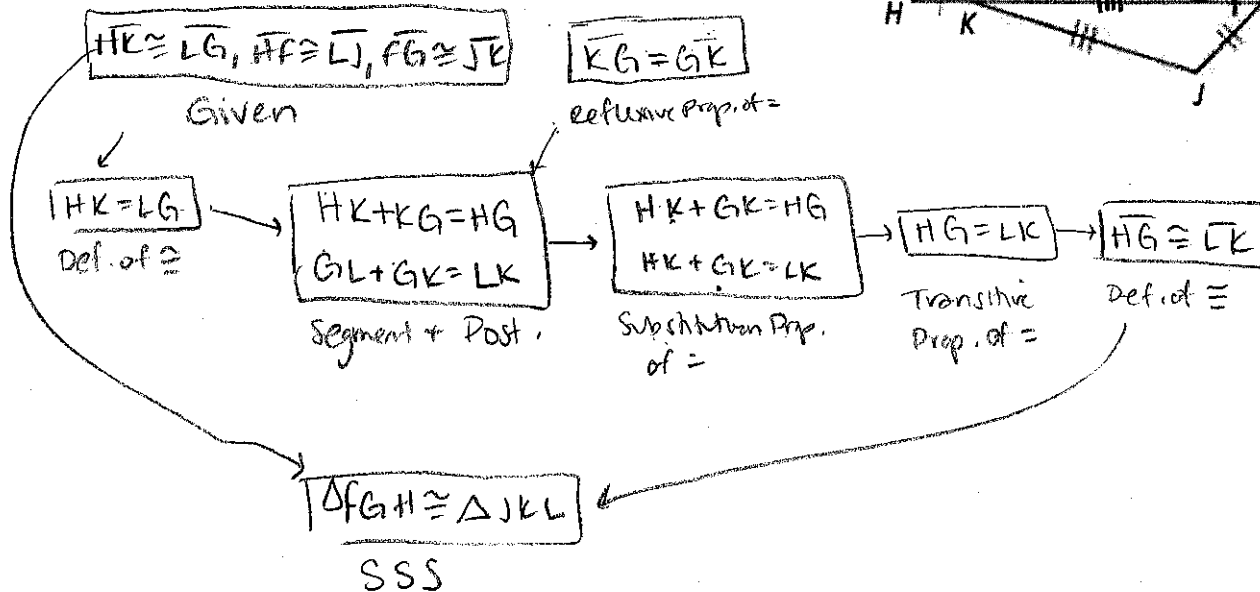 H K J
HK ≅ LG, HF ≅ LJ, FG ≅ JK
KG = GK
Given
Reflexive Prop. of =
HK = LG
Def. of ≅
HK + KG = HG
GL + GK = LK
Segment + Post.
HK + GK = HG
HK + GK = LK
Substitution Prop.
of =
HG = LK
Transitive
Prop. of =
HG ≅ LK
Def. of ≅
ΔFGH ≅ ΔJKL
SSS